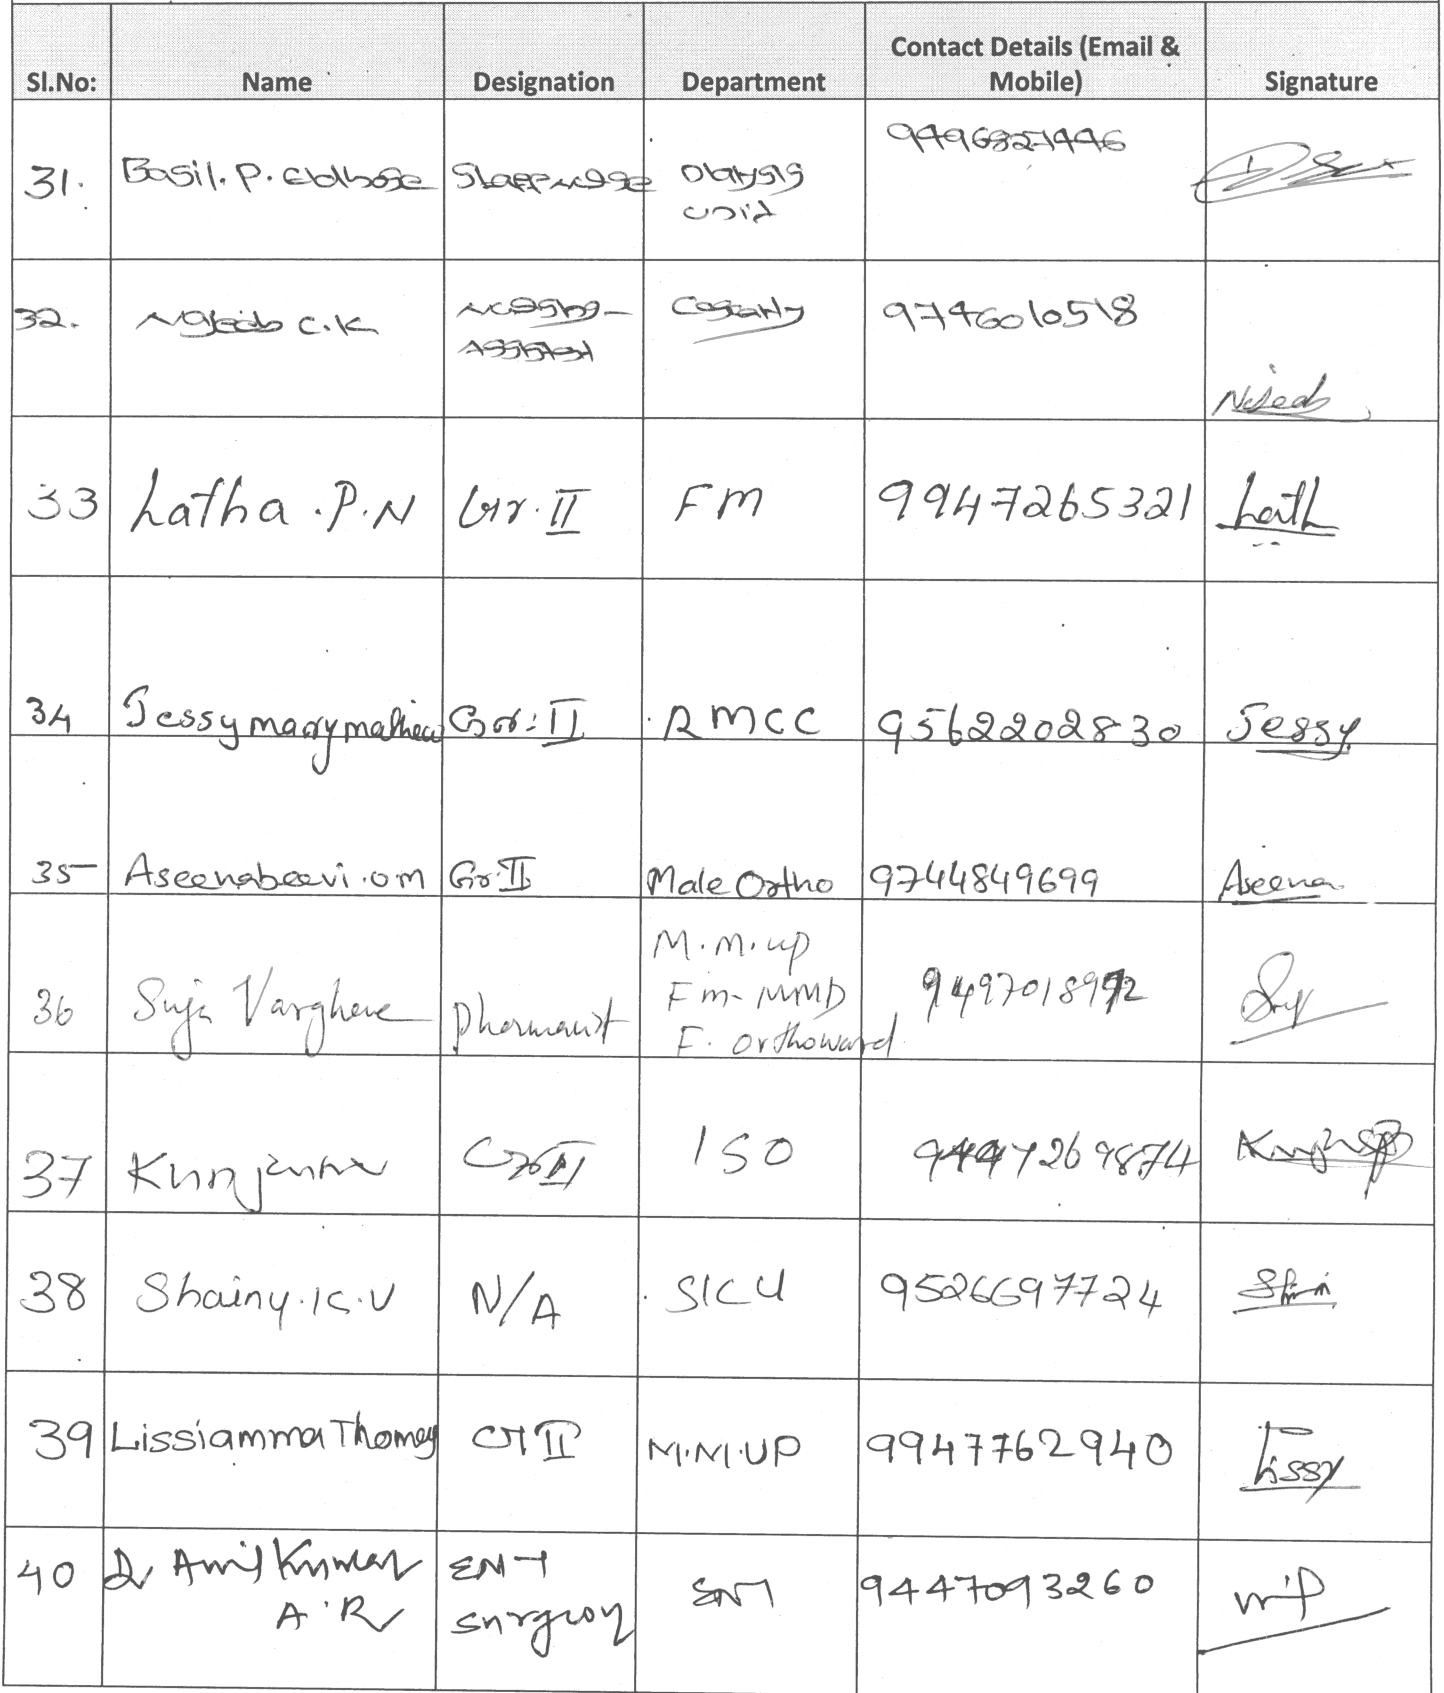 Sl.No: Name Designation Department Contact Details (Email & Mobile) Signature
31. Basil. P. Staff nurse Dialysis unit
32. C.K Nursing Assistant 9746010518 Nijeeb
33 Latha . P. N Gr. II FM 9947265321 Lath
34 Jessy mary mathew Gr: II RMCC 9562202830 Jessy
35 Aseenabeevi .om Gr. II Male Ortho 9744849699 Aseena
36 Suja Varghese Pharmacist M.M. up
Fm- MMD
F. Orthoward
37 Gr II ISO
38 Shainy. K. V N/A SICU 9526697724
39 Lissiamma Thomas Gr II M.M.UP 9947762940 Lissy
40 Dr Anil Kumar A.R ENT surgeon ENT 9447093260